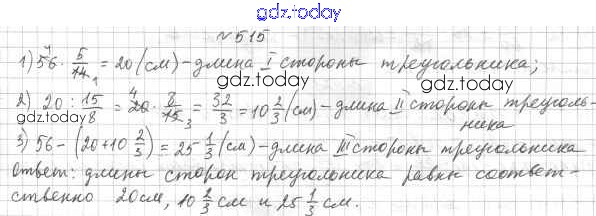 gdz.today
№515
1) 56 · 5/14 = 20 (см) - длина I стороны треугольника;
gdz.today
gdz.today
2) 20 : 15/8 = 20 · 8/15 = 32/3 = 10 2/3 (см) - длина II стороны треуголь-
ника
3) 56 - (20 + 10 2/3) = 25 1/3 (см) - длина III стороны треугольника
Ответ: длины сторон треугольника равны соответ-
ственно 20 см, 10 2/3 см и 25 1/3 см.
gdz.today